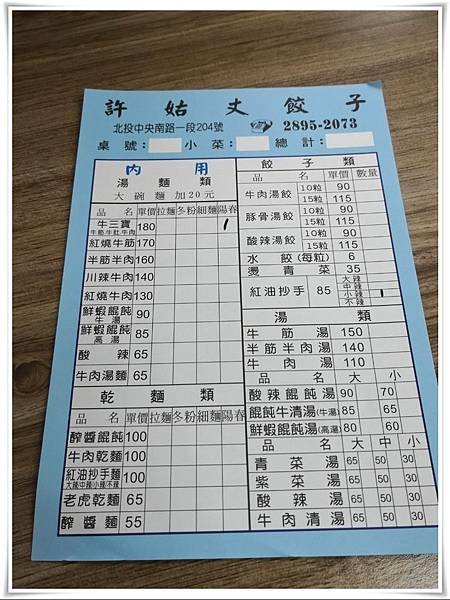 許姑丈餃子
北投中央南路一段204號 ☎ 2895-2073
桌號: 小菜: 總計:
內用
湯麵類
大碗麵加20元
品名 單價 拉麵 冬粉 細麵 陽春
牛三寶 牛筋/牛肚/牛肉 180
紅燒牛筋 170
半筋半肉 160
川辣牛肉 140
紅燒牛肉 130
鮮蝦餛飩 牛湯 90
鮮蝦餛飩 高湯 85
酸辣 65
牛肉湯麵 65
乾麵類
品名 單價 拉麵 冬粉 細麵 陽春
醡醬餛飩 100
牛肉乾麵 100
紅油抄手麵 大辣中辣小辣不辣 100
老虎乾麵 65
醡醬麵 55
餃子類
品名 單價 數量
牛肉湯餃 10粒 90
15粒 115
豚骨湯餃 10粒 90
15粒 115
酸辣湯餃 10粒 90
15粒 115
水餃(每粒) 6
燙青菜 35
紅油抄手 85 大辣
中辣
小辣
不辣
湯類
牛筋湯 150
半筋半肉湯 140
牛肉湯 110
品名 大 小
酸辣餛飩湯 90 70
餛飩牛清湯(牛湯) 85 65
鮮蝦餛飩湯(高湯) 80 60
品名 大 中 小
青菜湯 65 50 30
紫菜湯 65 50 30
酸辣湯 65 50 30
牛肉清湯 65 50 30